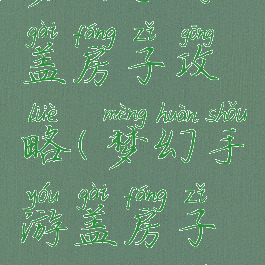 gài fáng zǐ gōng
盖房子攻
lüè mèng huàn shǒu
略(梦幻手
yóu gài fáng zǐ
游盖房子